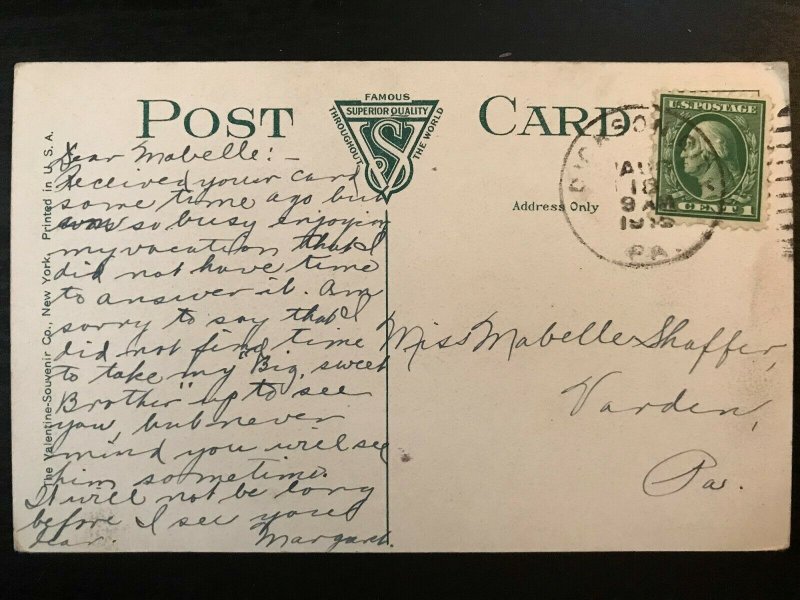 POST CARD
FAMOUS
SUPERIOR QUALITY
THROUGHOUT THE WORLD
VS
Address Only
U.S. POSTAGE
CENT 1
AUG
18
9 AM
PA.
The Valentine-Souvenir Co., New York. Printed in U. S. A.
Dear Mabelle: -
Received your card
some time ago but
was so busy enjoying
my vacation that I
did not have time
to answer it. Am
sorry to say that I
did not find time
to take my "Big, sweet
Brother" up to see
you, but never
mind you will see
him sometime.
It will not be long
before I see you
dear. Margaret.
Miss Mabelle Shaffer,
Varden,
Pa.